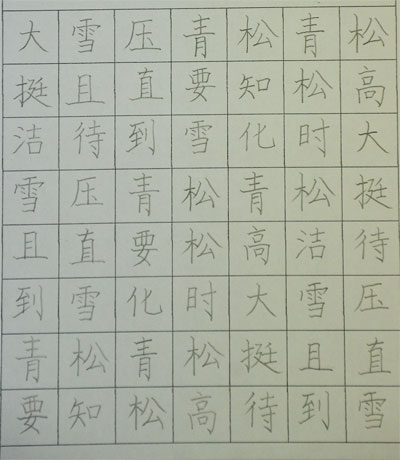 大雪压青松青松
挺且直要知松高
洁待到雪化时大
雪压青松青松挺
且直要松高洁待
到雪化时大雪压
青松青松挺且直
要知松高待到雪